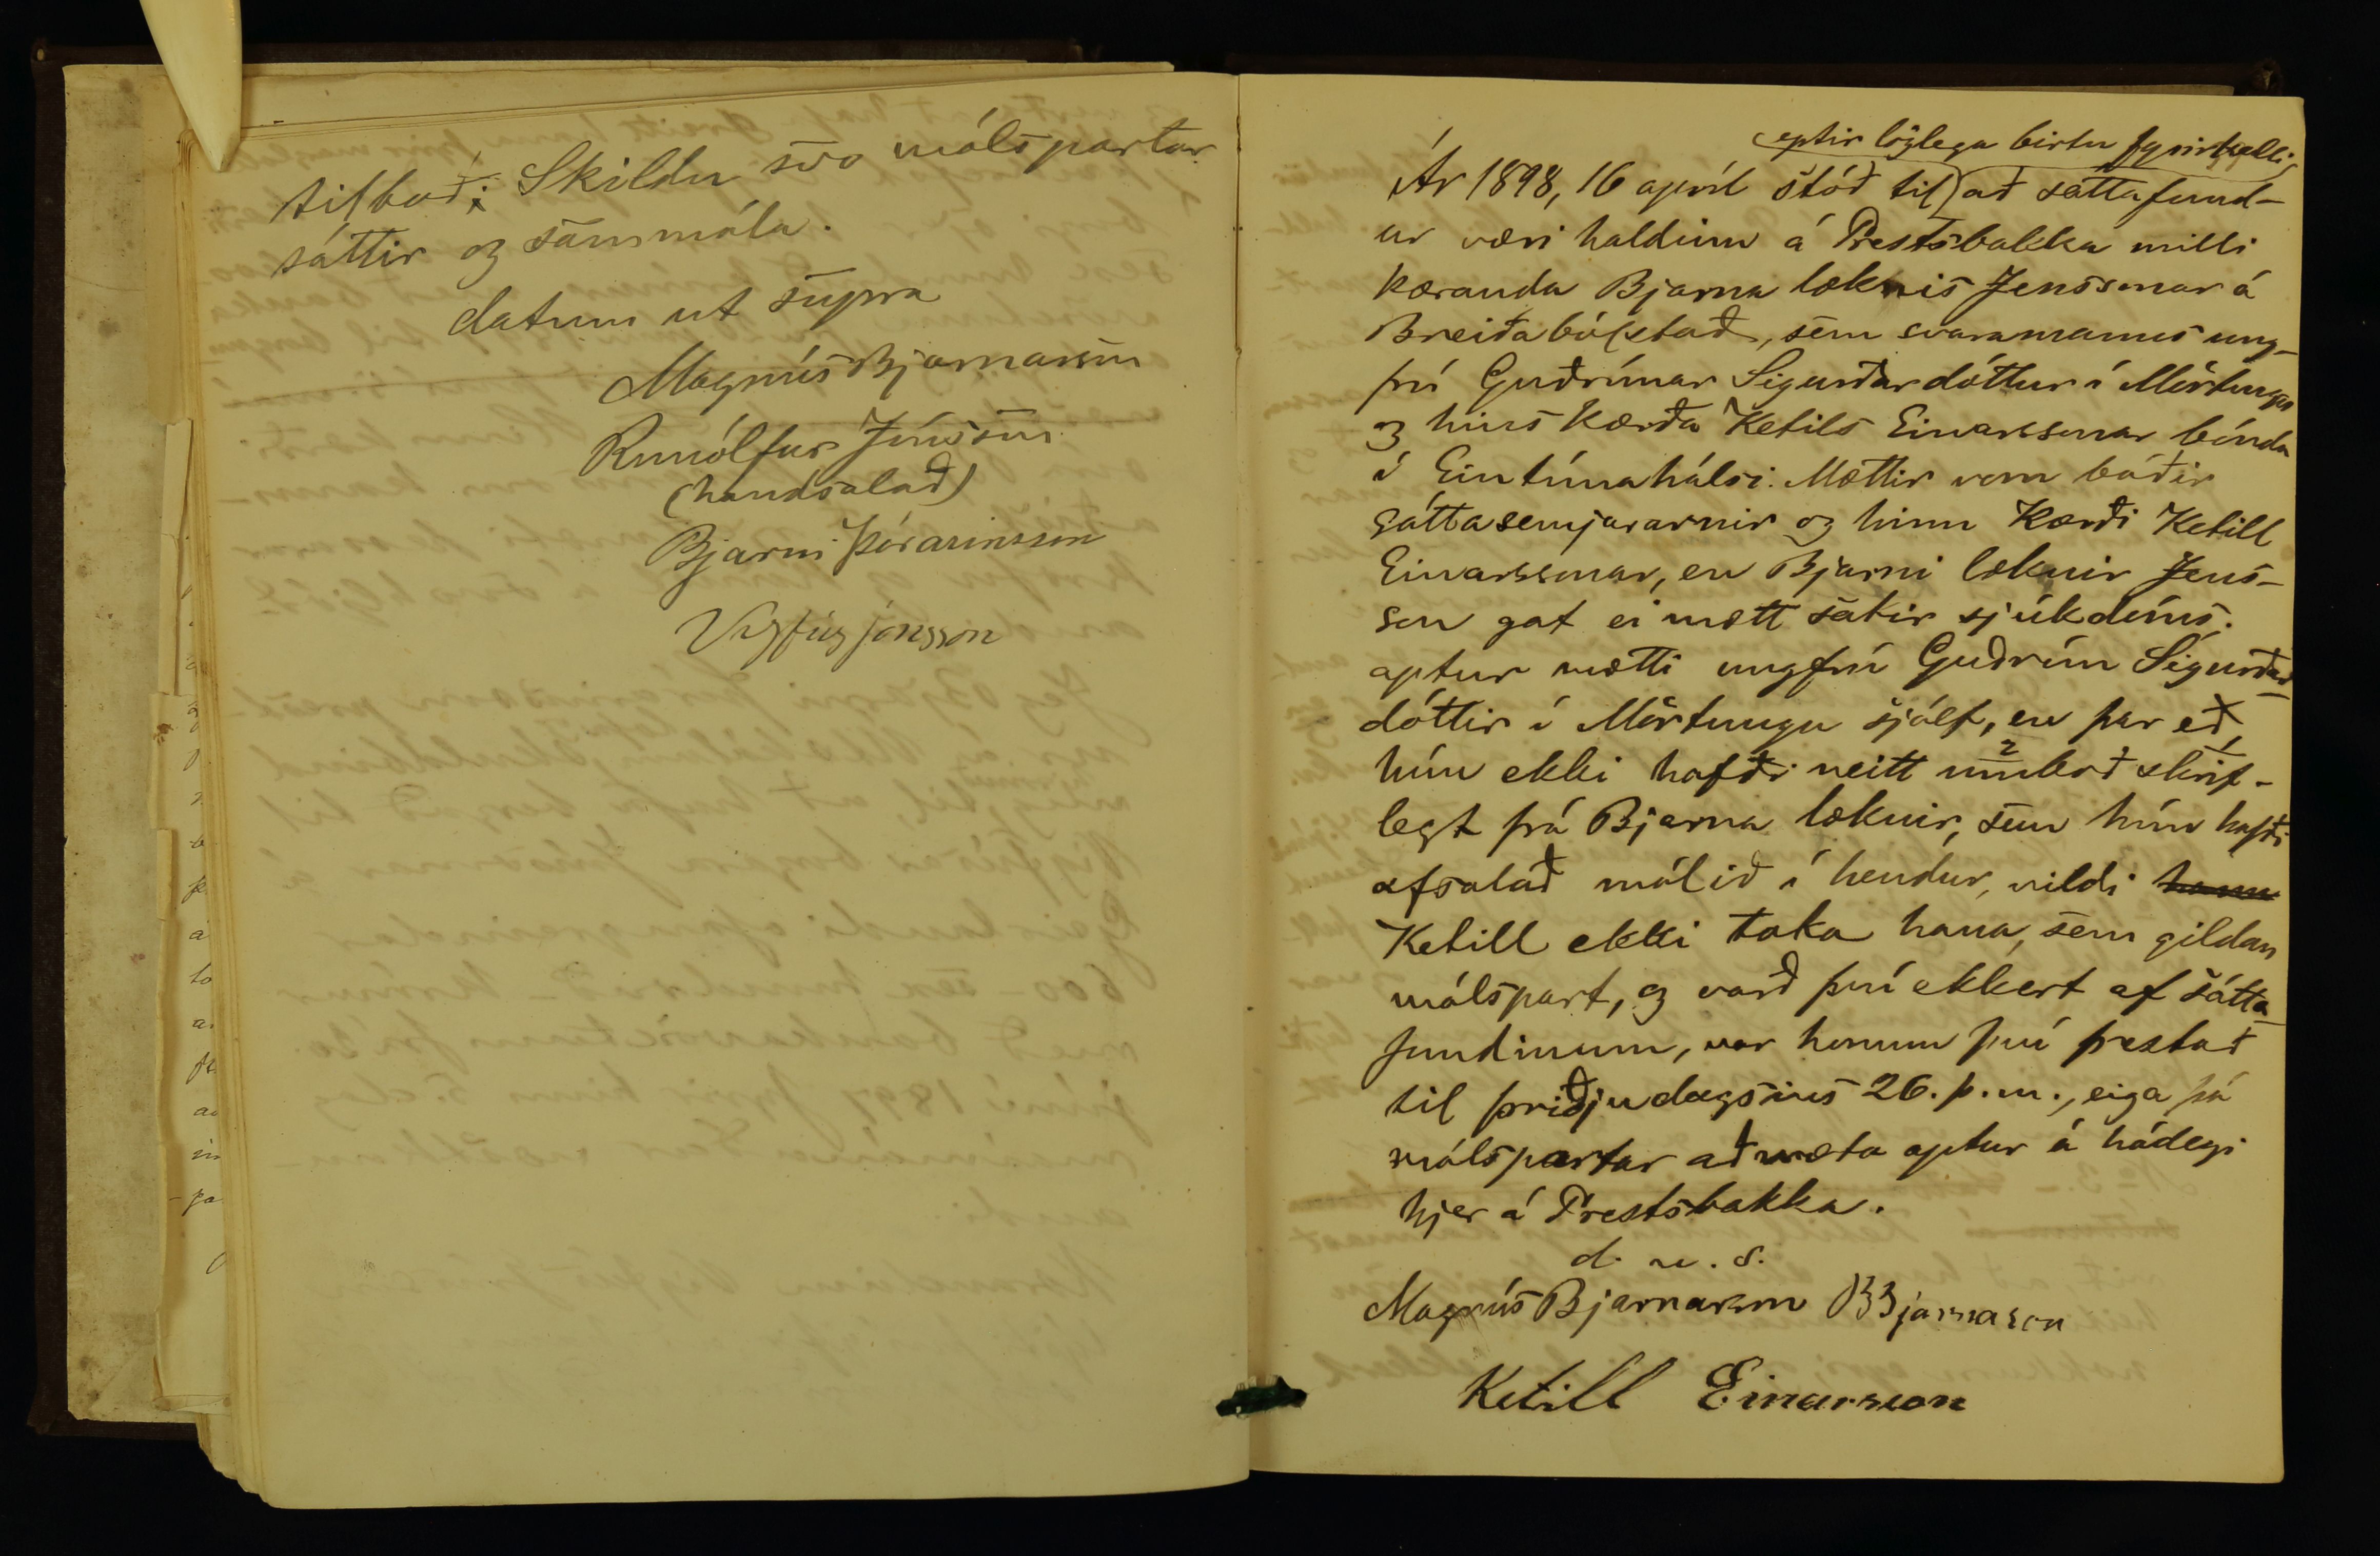 tilboði. Skildu svo málspartar
sáttir og sammála.
datum ut supra
Magnús Bjarnarson
Runólfur Jónsson
(handsalað)
Bjarni Þórarinsson
Vigfús jónsson
eptir löglega birtu fyrirkalli,
Ár 1898, 16 apríl stóð til að sáttafund-
ur væri haldinn á Prestsbakka milli
kæranda Bjarna læknis Jenssonar á
Breiðabólstað, sem svaramanns ung-
frú Guðrúnar Sigurðardóttur í Mörtungu
og hins kærða Ketils Einarssonar bónda
í Eintúnahálsi. Mættir voru báðir
sáttasemjararnir og hinn kærði Ketill
Einarssonar, en Bjarni læknir Jens-
son gat ei mætt sakir sjúkdóms.
aptur mætti ungfrú Guðrún Sigurðar
dóttir í Mörtungu sjálf, en þar eð
hún ekki hafði neitt umboð skrif-
legt frá Bjarna læknir, sem hún hafði
afsalað málið í hendur, vildi hann
Ketill ekki taka hana, sem gildan
málspart, og varð því ekkert af sátta
fundinum, var honum því frestað
til þriðjudagsins 26. þ. m., eiga þá
málspartar að mæta aptur á hádegi
hjer á Prestsbakka.
d. u. s.
Magnús Bjarnarson B Bjarnason
Ketill Einarsson